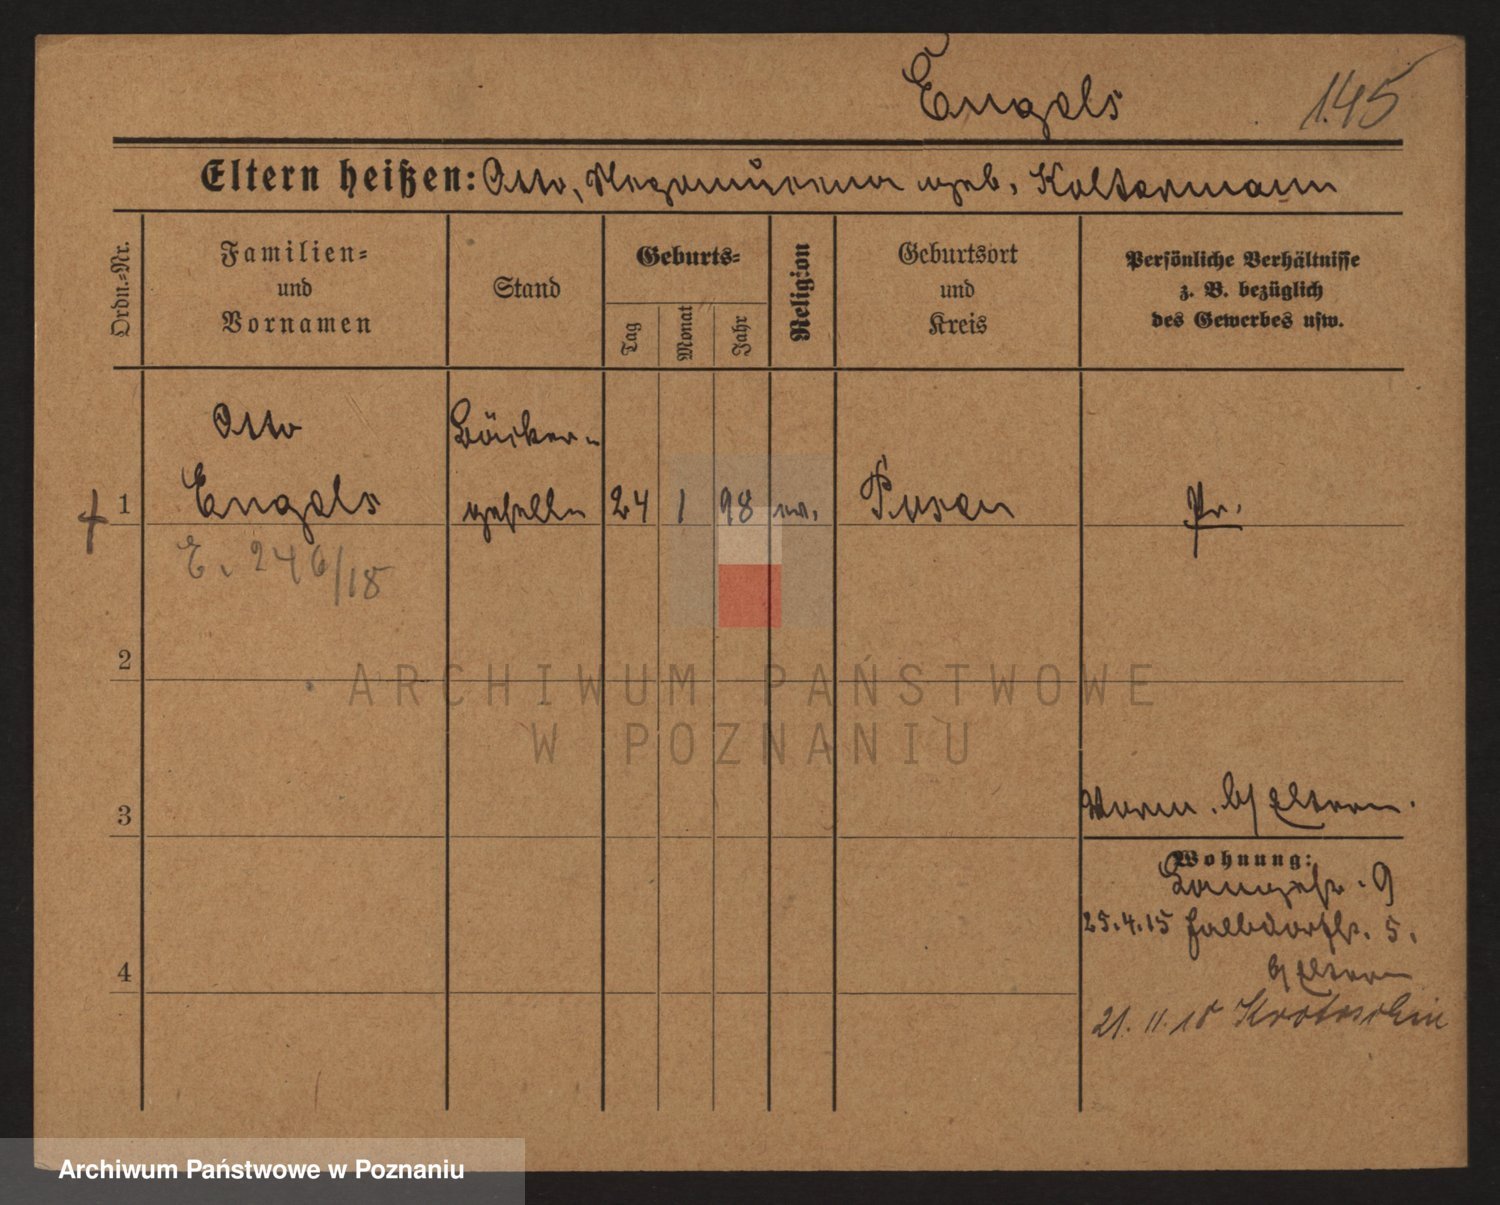 Engels
145
Eltern heißen: Otto, geb. Koltermann
Ordn.-Nr.
Familien-
und
Vornamen
Stand
Geburts-
Tag
Monat
Jahr
Religion
Geburtsort
und
Kreis
Persönliche Verhältnisse
z. B. bezüglich
des Gewerbes usw.
Otto
Bäcker-
1 Engels geselle 24 1 98 ev. Posen Pr.
E. 246/18
2
ARCHIWUM PAŃSTWOWE
W POZNANIU
3
b/ Eltern.
Wohnung:
Langestr. 9
25.4.15 Halbdorfstr. 5.
4
b/ Eltern
21. 11. 18 Krotoschin
Archiwum Państwowe w Poznaniu